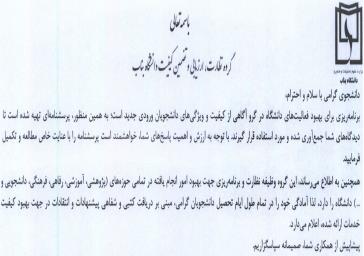 باسمه تعالی
گروه نظارت، ارزیابی و تضمین کیفیت دانشگاه بناب
دانشگاه بناب
دانشجوی گرامی با سلام و احترام،
برنامه‌ریزی برای بهبود فعالیت‌های دانشگاه در گرو آگاهی از کیفیت و ویژگی‌های دانشجویان ورودی جدید است؛ به همین منظور، پرسشنامه‌ای تهیه شده است تا
دیدگاه‌های شما جمع‌آوری شده و مورد استفاده قرار گیرند. با توجه به ارزش و اهمیت پاسخ‌های شما، خواهشمند است پرسشنامه را با عنایت خاص مطالعه و تکمیل
فرمایید
همچنین به اطلاع می‌رساند، این گروه وظیفه نظارت و برنامه‌ریزی جهت بهبود امور انجام یافته در تمامی حوزه‌های (پژوهشی، آموزشی، رفاهی، فرهنگی، دانشجویی و
...) دانشگاه را دارد، لذا آمادگی خود را در تمام طول ایام تحصیل دانشجویان گرامی، مبنی بر دریافت کتبی و شفاهی پیشنهادات و انتقادات در جهت بهبود کیفیت
خدمات ارائه شده، اعلام می‌دارد.
پیشاپیش از همکاری شما، صمیمانه سپاسگزاریم.